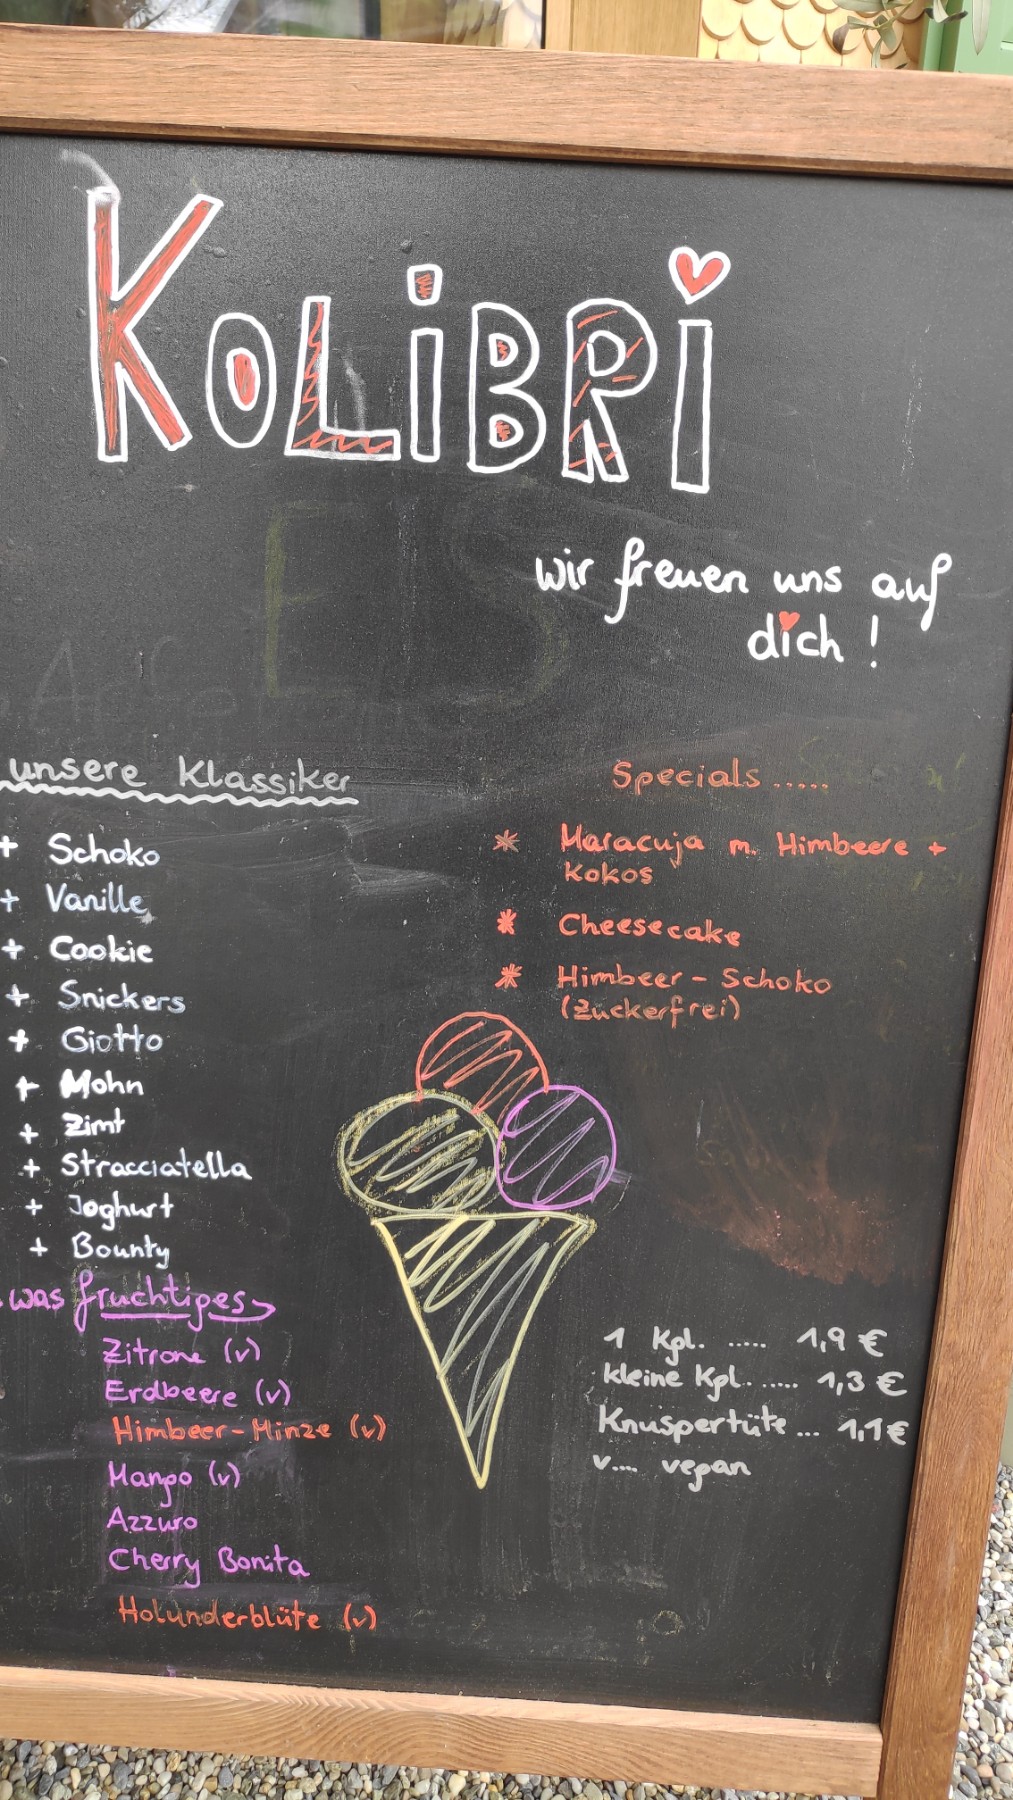 KOLiBRi
wir freuen uns auf
dich !
unsere Klassiker
+ Schoko
+ Vanille
+ Cookie
+ Snickers
+ Giotto
+ Mohn
+ Zimt
+ Stracciatella
+ Joghurt
+ Bounty
was fruchtiges
Zitrone (v)
Erdbeere (v)
Himbeer-Minze (v)
Mango (v)
Azzuro
Cherry Bonita
Holunderblüte (v)
Specials .....
* Maracuja m. Himbeere +
Kokos
* Cheesecake
* Himbeer - Schoko
(Zuckerfrei)
1 Kgl. ..... 1,9 €
kleine Kgl. ..... 1,3 €
Knuspertüte ... 1,1 €
v.... vegan